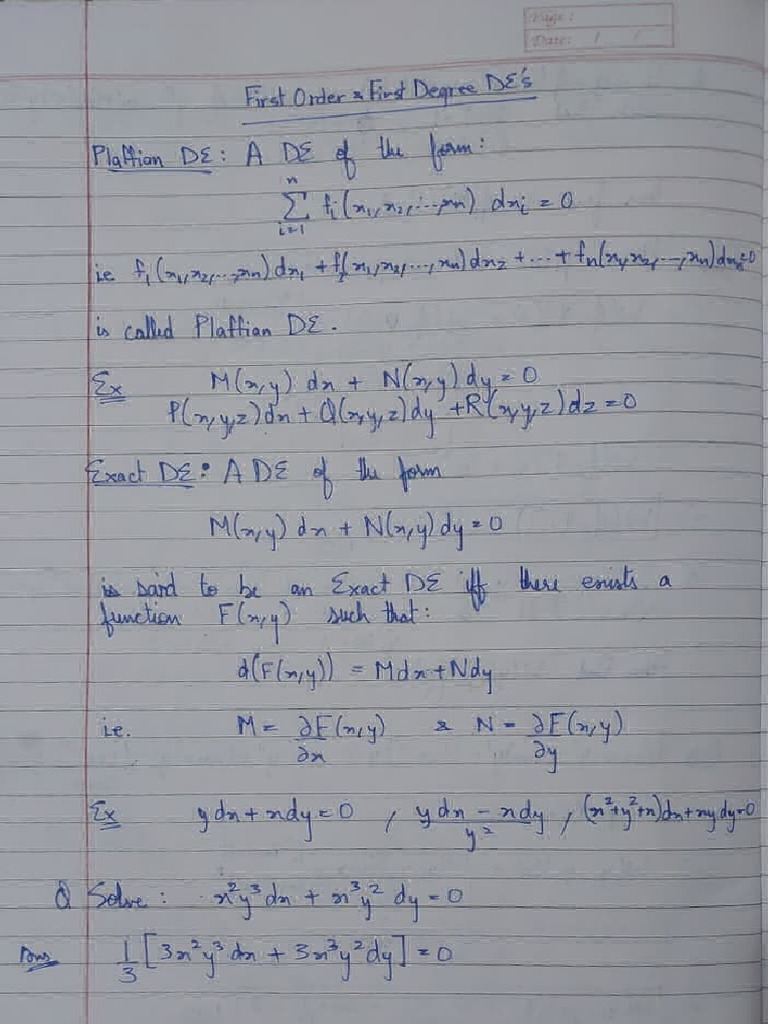 Page :
Date: / /
First Order & First Degree DE's
Plaffian DE: A DE of the form:
n
∑ fi(x1, x2, ..., xn) dxi = 0
i=1
ie f1(x1, x2, ..., xn) dx1 + f2(x1, x2, ..., xn) dx2 + ... + fn(x1, x2, ---, xn) dxn = 0
is called Plaffian DE.
Ex M(x,y) dx + N(x,y) dy = 0
P(x,y,z) dx + Q(x,y,z) dy + R(x,y,z) dz = 0
Exact DE: A DE of the form
M(x,y) dx + N(x,y) dy = 0
is said to be an Exact DE iff there exists a
function F(x,y) such that:
d(F(x,y)) = Mdx + Ndy
i.e. M = ∂F(x,y)/∂x & N = ∂F(x,y)/∂y
Ex ydx + xdy = 0 , (ydx - xdy)/y² , (x²+y²+x)dx + xy dy = 0
Q Solve : x²y³ dx + x³y² dy = 0
Ans 1/3 [3x²y³ dx + 3x³y² dy] = 0